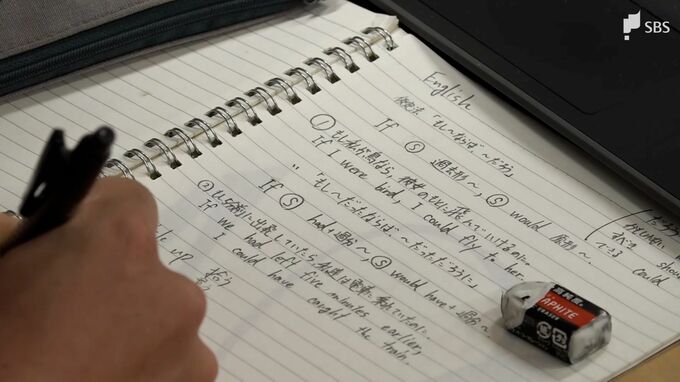 SBS
English
仮定法 「もし〜ならば、〜だろう」
If Ⓢ 過去形〜, Ⓢ would 原形〜.
① もし私が鳥なら、彼女のもとに飛んでいけるのに。
If I were bird, I could fly to her.
"もし〜だったならば、〜だっただろうに」
If Ⓢ had+過分〜, Ⓢ would have+過分〜
② もし5分前に出発していたら
If we had left five minutes earlier,
I could have caught the train.
could
up
APHITE
ERASER